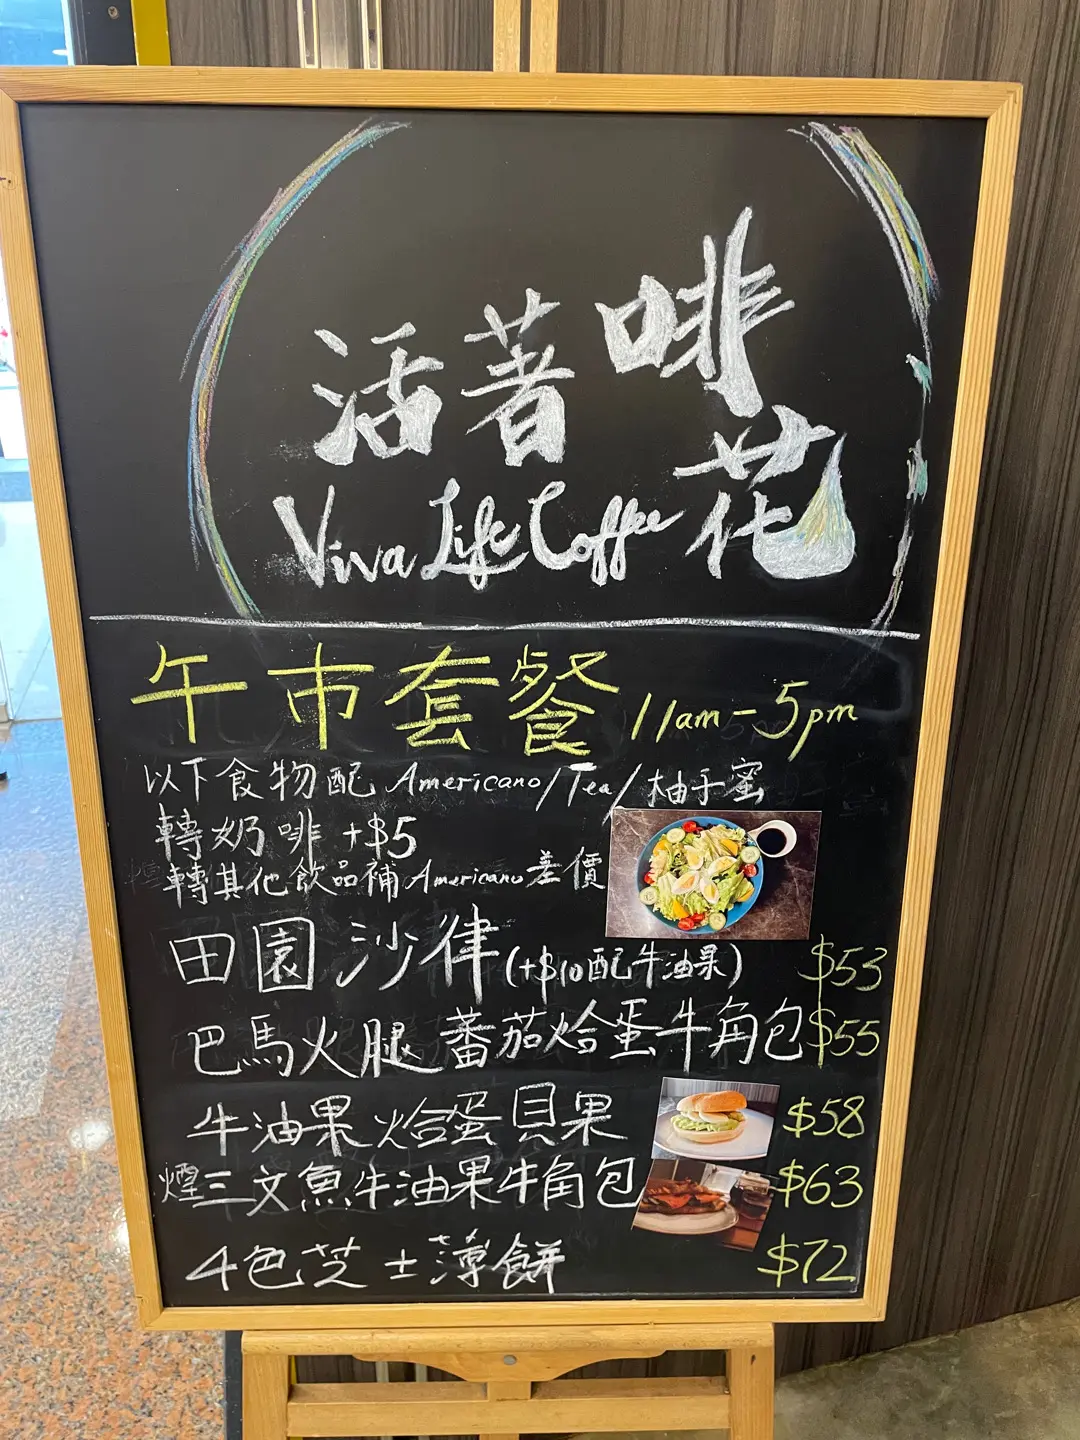 活著啡花
Viva Life Coffee
午市套餐 11am - 5pm
以下食物配 Americano/Tea/柚子蜜
轉奶啡 +$5
轉其他飲品補 Americano 差價
田園沙律 (+$10配牛油果) $53
巴馬火腿蕃茄炝蛋牛角包 $55
牛油果炝蛋貝果 $58
煙三文魚牛油果牛角包 $63
4色芝士薄餅 $72